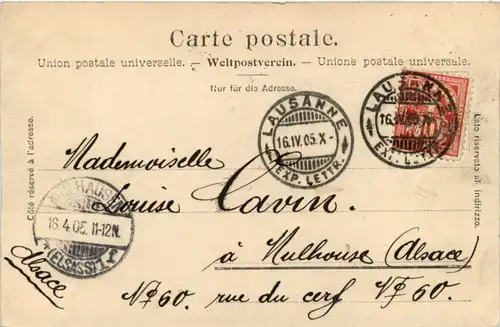 Carte postale.
Union postale universelle. — Weltpostverein. — Unione postale universale.
Nur für die Adresse.
Côté réservé à l'adresse.
Lato riservato all' indirizzo.
LAUSANNE
16.IV.05.X-
EXP. LETTR.
LAUSANNE
16.IV.05.
EXP. LETTR.
10
Mademoiselle
Louise Cavin.
MÜLHAUSEN
16.4.05. 11-12N.
(ELSASS)
à Mulhouse (Alsace)
Alsace
No 60. rue du cerf No 60.